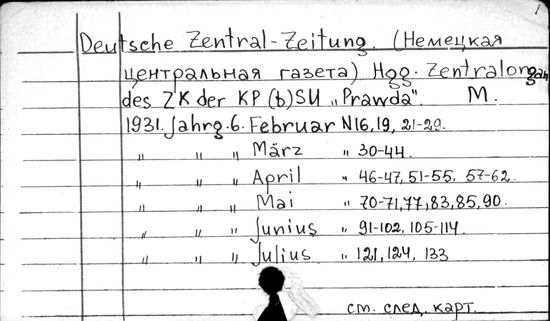 1
Deutsche Zentral-Zeitung. (Немецкая
центральная газета) Hgg. Zentralorgan
des ZK der KP(b)SU „Prawda". М.
1931. Jahrg. 6. Februar N16, 19, 21-29.
„ „ „ März „ 30-44.
„ „ „ April „ 46-47, 51-55, 57-62.
„ „ „ Mai „ 70-71, 77, 83, 85, 90.
„ „ „ Junius „ 91-102, 105-114.
„ „ „ Julius „ 121, 124, 133
см. след. карт.